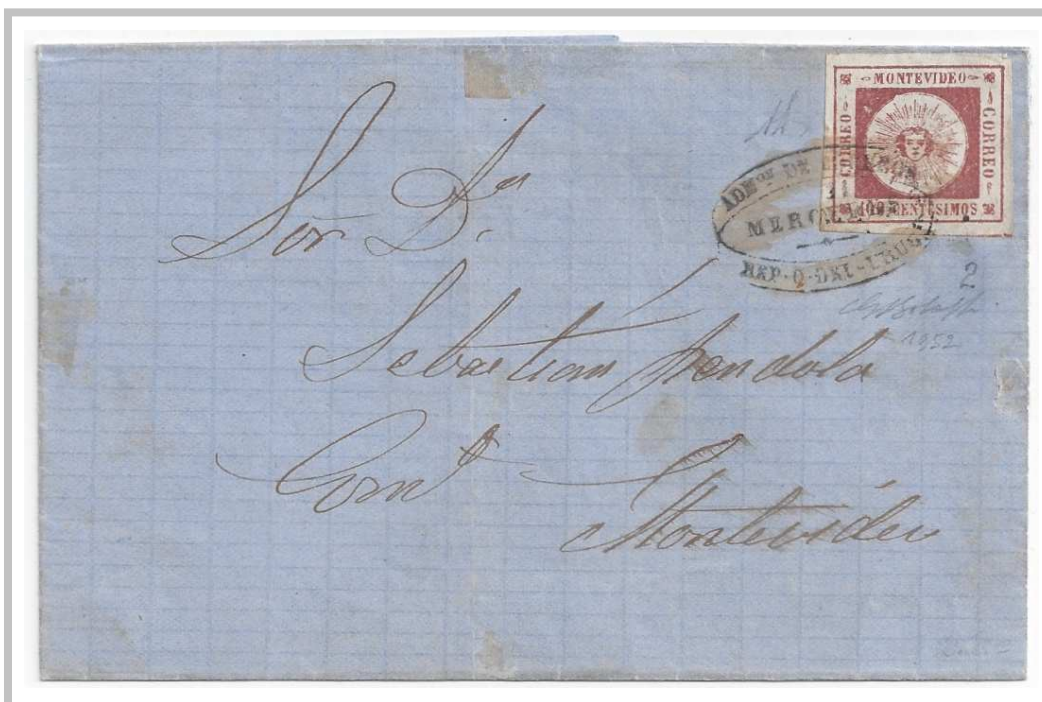 MONTEVIDEO
CORREO
CORREO
100 CENTESIMOS
ADMon DE
MERCEDES
REP. O. DEL URUGUAY
Sor Dn
Sebastian Pendola
Comt
Montevideo
2
1952